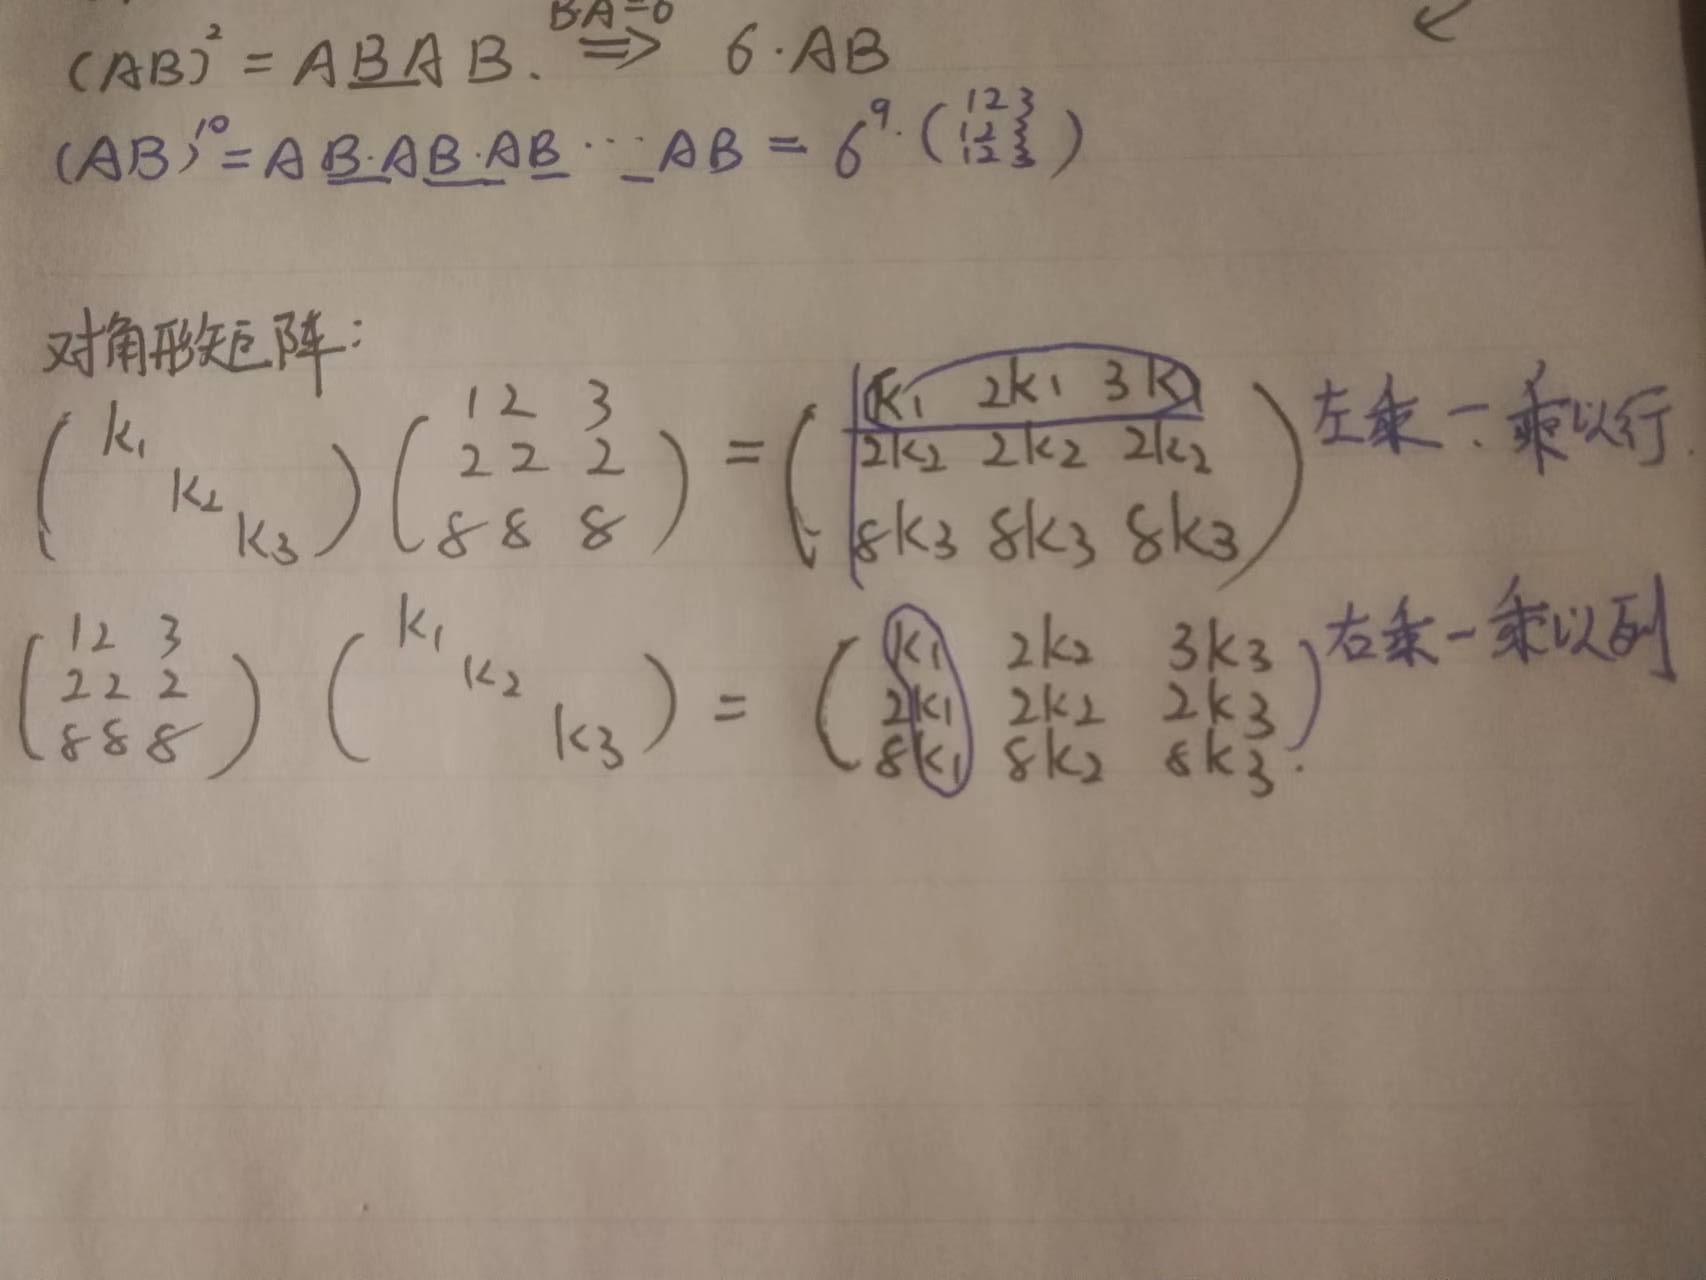 (AB)² = ABAB. BA=6 ⇒ 6·AB
(AB)¹⁰ = AB·AB·AB ··· AB = 6⁹·(
1 2 3
1 2 3
1 2 3
)
对角形矩阵：
(
k₁
k₂
k₃
) (
1 2 3
2 2 2
8 8 8
) = (
k₁ 2k₁ 3k₁
2k₂ 2k₂ 2k₂
8k₃ 8k₃ 8k₃
) 左乘一:乘以行.
(
1 2 3
2 2 2
8 8 8
) (
k₁
k₂
k₃
) = (
k₁ 2k₂ 3k₃
2k₁ 2k₂ 2k₃
8k₁ 8k₂ 8k₃.
) 右乘一乘以列